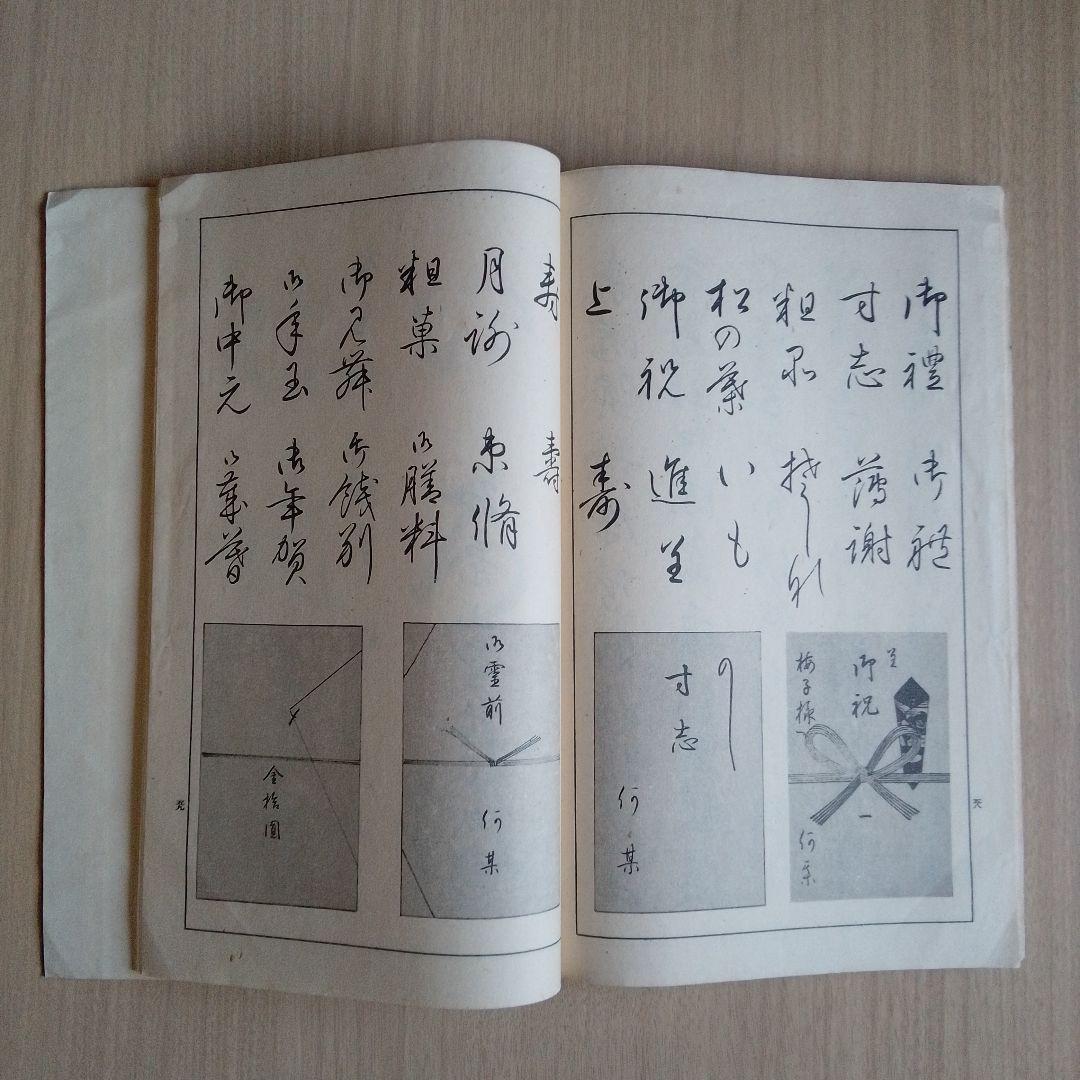 御禮
御礼
寸志
薄謝
粗品
松の葉
いも
御祝
進呈
上
壽
壽
壽
月謝
束脩
粗菓
御膳料
御見舞
御餞別
御年玉
御年賀
御中元
御歳暮
呈
御祝
梅子様
何某
の
寸志
何某
御霊前
何某
金拾圓